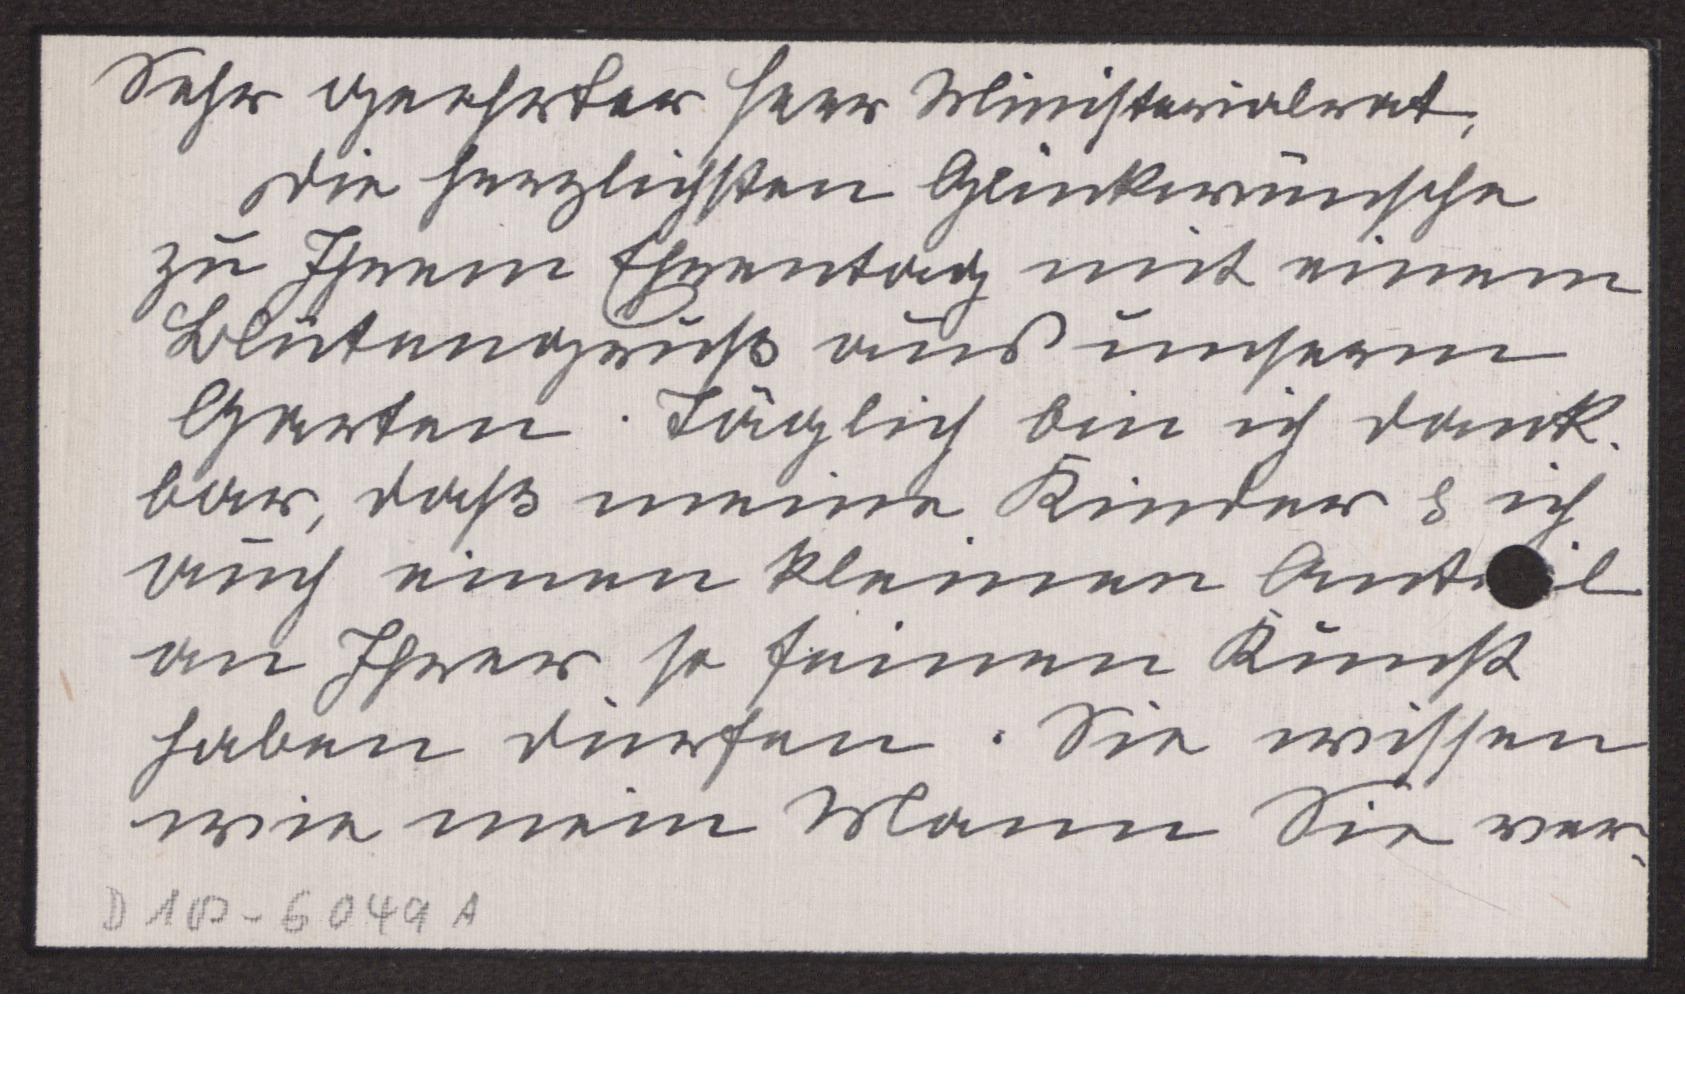 Sehr geehrter Herr Ministerialrat,
die herzlichsten Glückwünsche
zu Ihrem Ehrentag mit einem
Blütengruß aus unserm
Garten. Täglich bin ich dank-
bar, daß meine Kinder & ich
auch einen kleinen Anteil
an Ihrer so feinen Kunst
haben dürfen. Sie wissen
wie mein Mann Sie ver-
D 10-6049 A